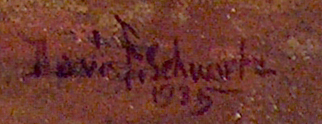 Davis F. Schwartz
1935